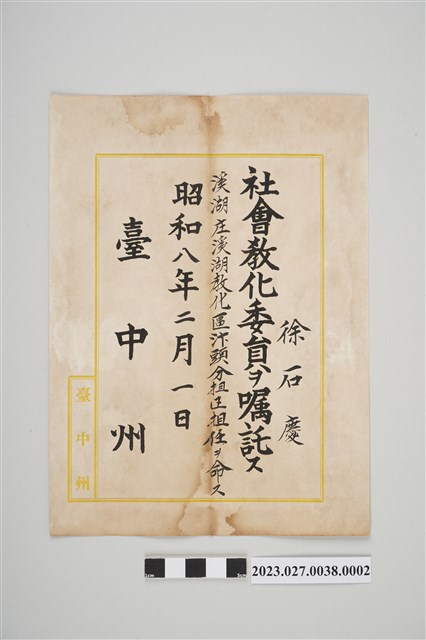 徐石慶
社會教化委員ヲ嘱託ス
溪湖庄溪湖教化區汴頭分担區担任ヲ命ス
昭和八年二月一日
臺中州
臺中州
1cm
5cm
2023.027.0038.0002